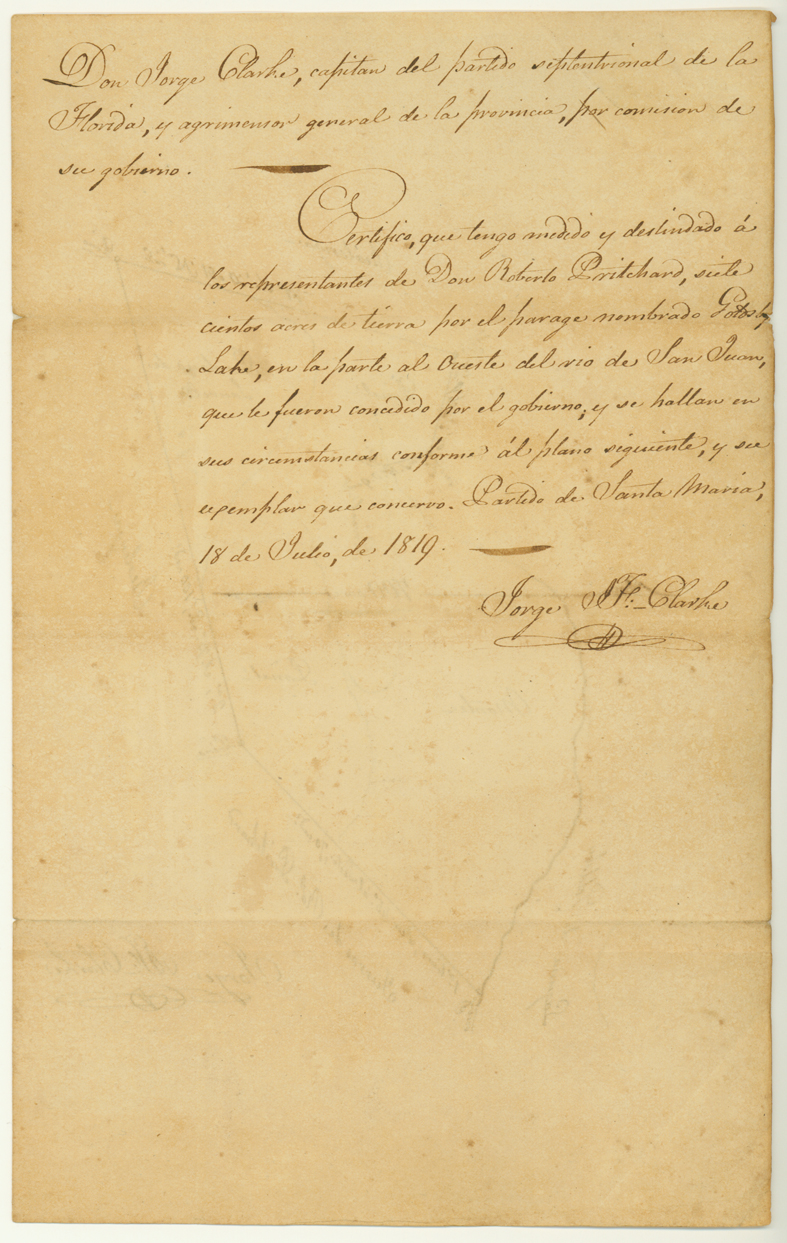 Don Jorge Clarke, capitan del partido septentrional de la
Florida, y agrimensor general de la provincia, por comision de
su gobierno.
Certifico, que tengo medido y deslindado á
los representantes de Don Roberto Pritchard, siete
cientos acres de tierra por el parage nombrado
Lake, en la parte al Oueste del rio de San Juan,
que le fueron concedido por el gobierno; y se hallan en
sus circumstancias conforme ál plano siguiente, y su
exemplar que concervo. Partido de Santa Maria,
18 de Julio, de 1819.
Jorge J. F. Clarke